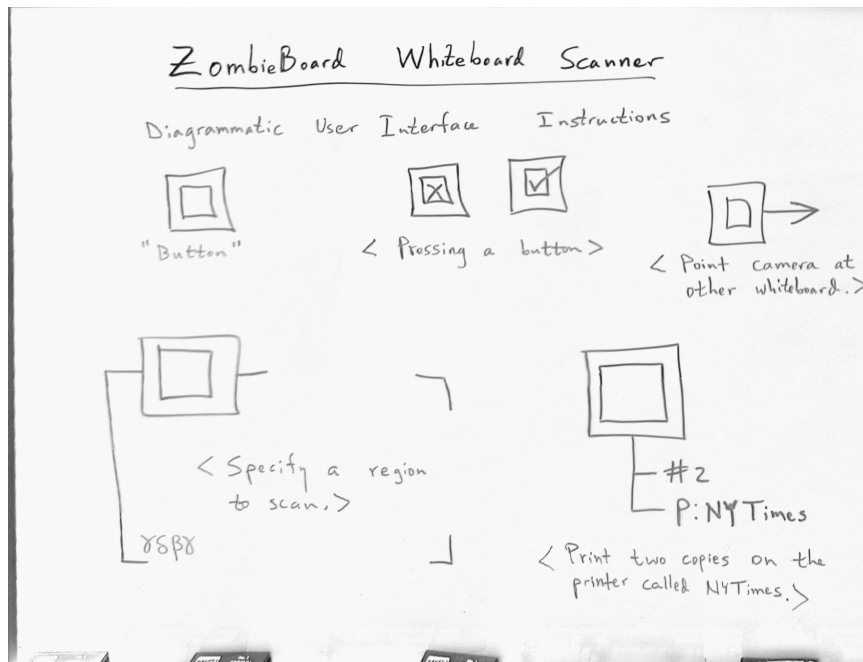 ZombieBoard Whiteboard Scanner
Diagrammatic User Interface Instructions
"Button"
< Pressing a button >
< Point camera at
other whiteboard. >
< Specify a region
to scan. >
γδβγ
#2
P: NYTimes
< Print two copies on the
printer called NYTimes. >